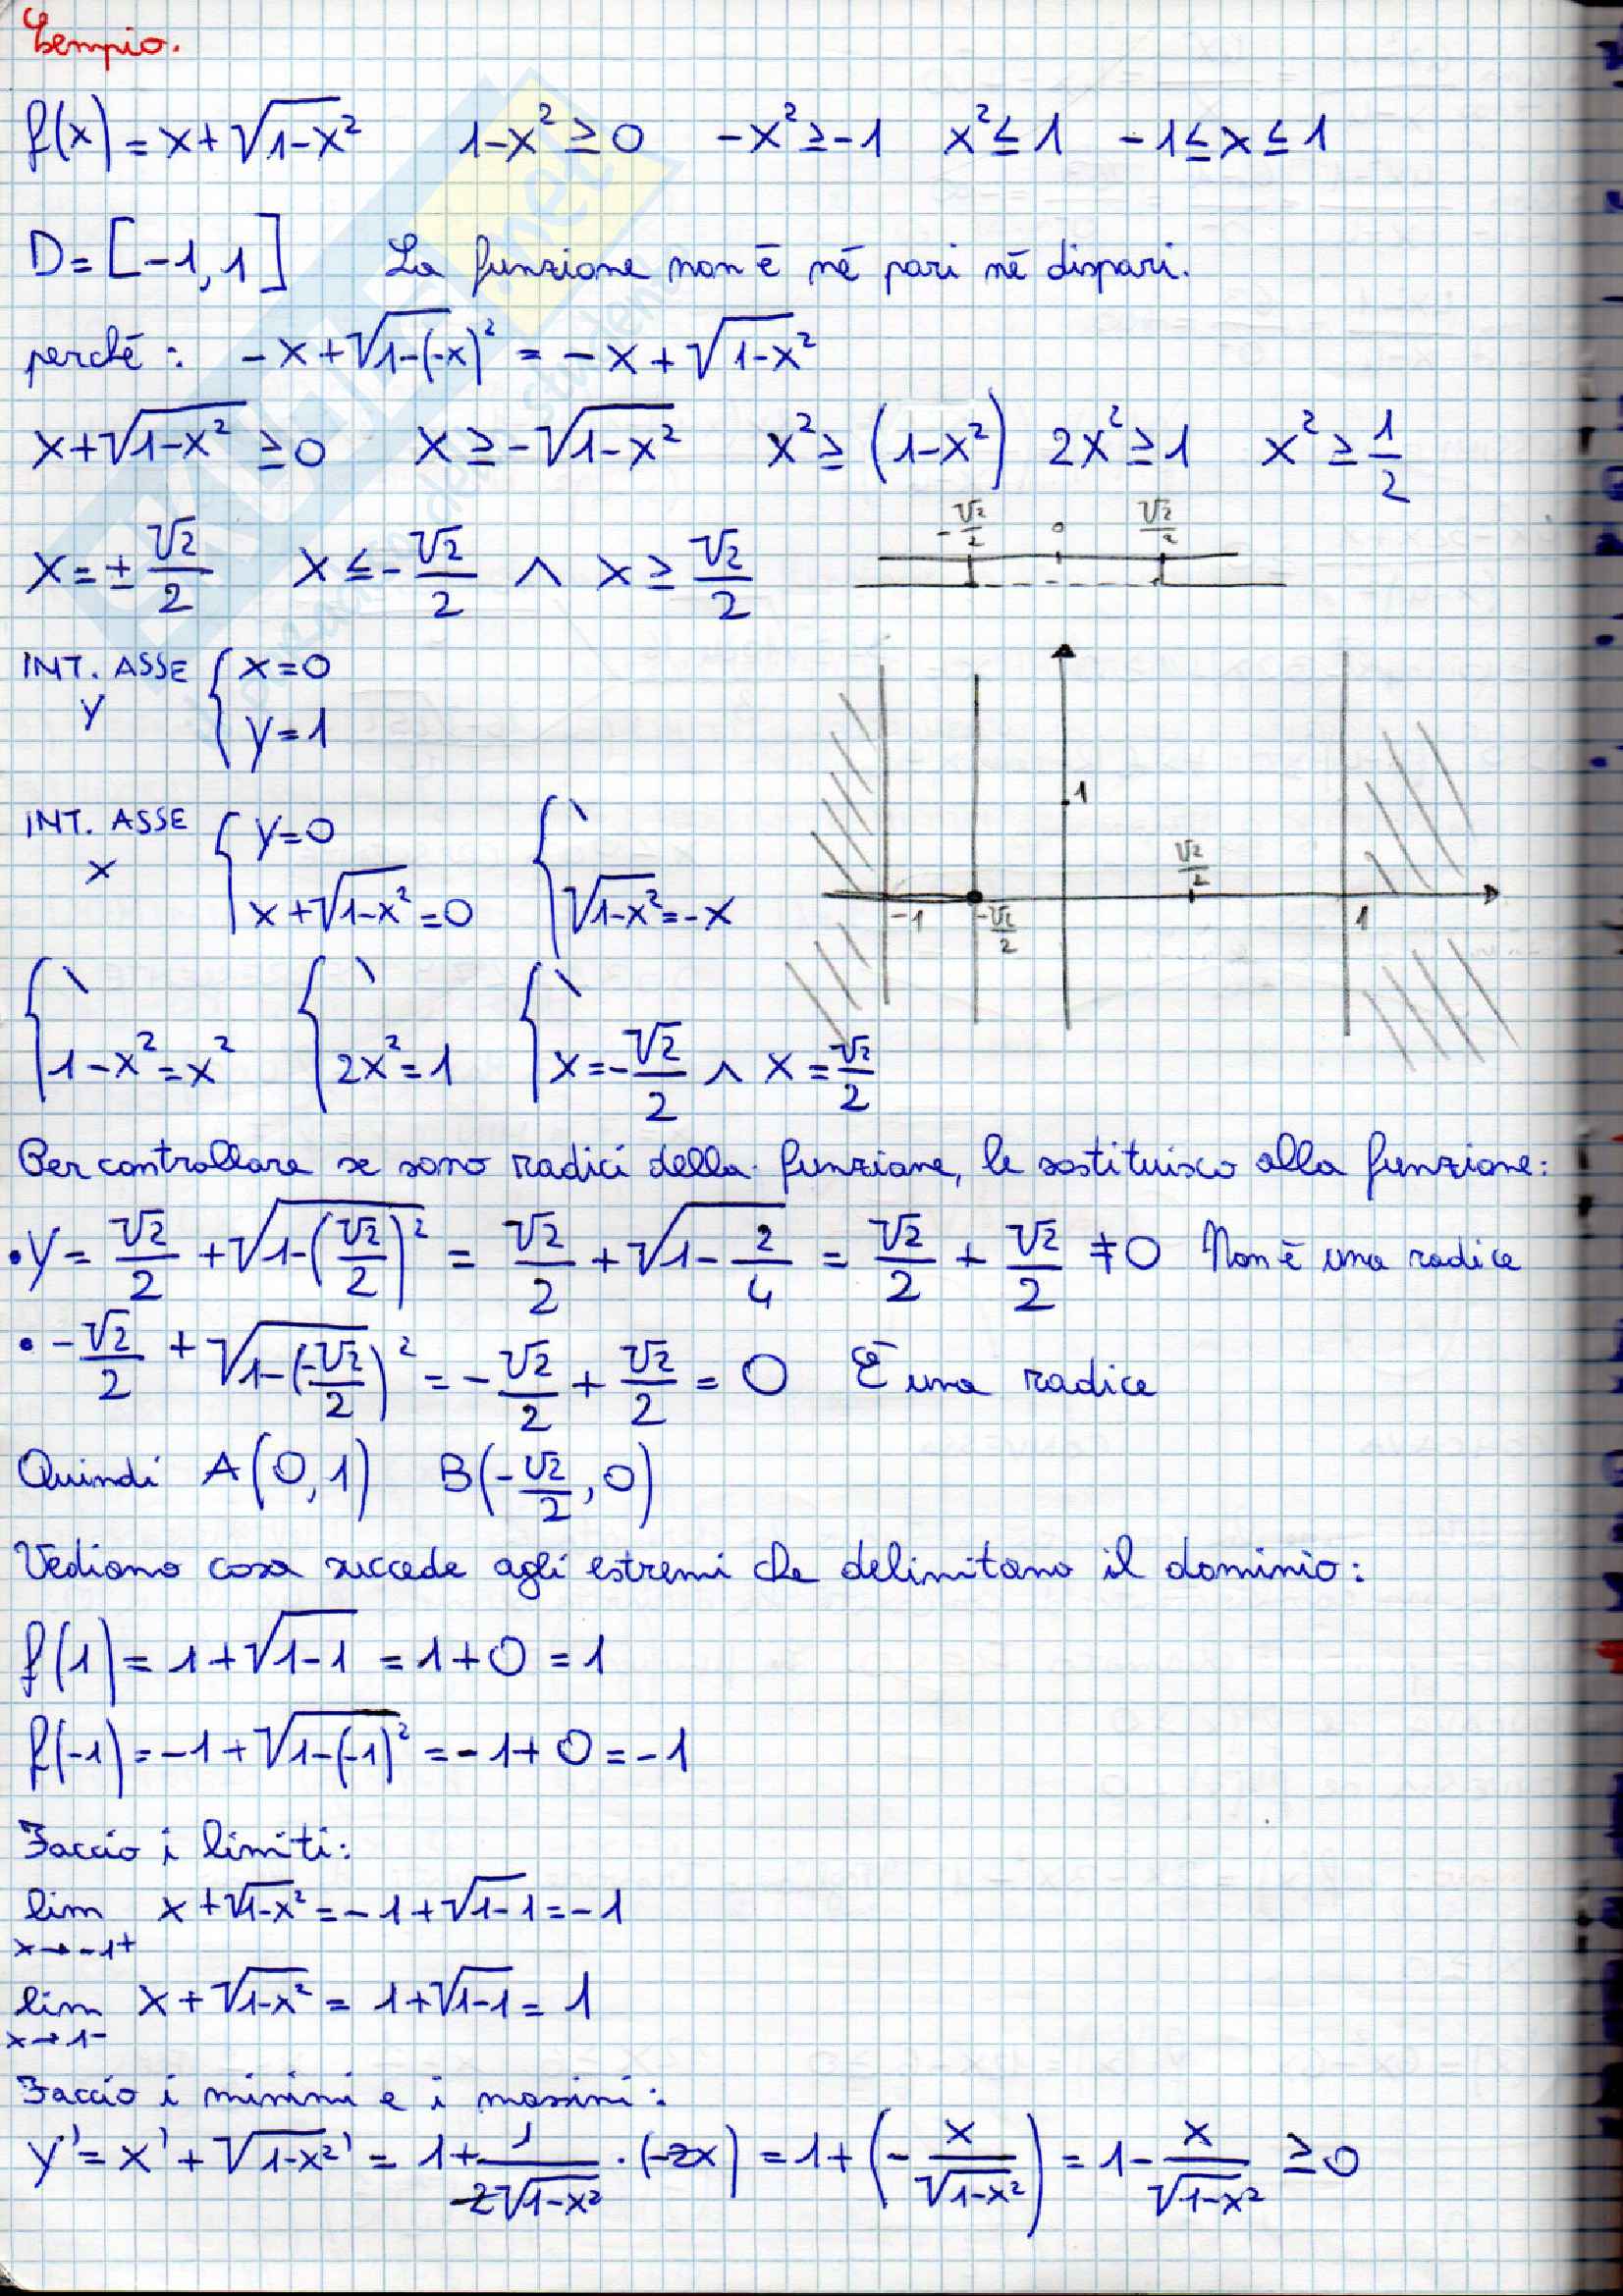 Esempio.
f(x) = x+√(1-x²)   1-x² ≥ 0   -x² ≥ -1   x² ≤ 1   -1 ≤ x ≤ 1
D = [-1, 1]   La funzione non è né pari né dispari.
perché: -x+√(1-(-x)²) = -x+√(1-x²)
x+√(1-x²) ≥ 0   x ≥ -√(1-x²)   x² ≥ (1-x²)   2x² ≥ 1   x² ≥ 1/2
x = ± √2/2   x ≤ -√2/2 ∧ x ≥ √2/2
-√2/2   0   √2/2
INT. ASSE y { x=0
y=1
1
√2/2
-1   -√2/2   1
INT. ASSE x { y=0   { \
x+√(1-x²) = 0   √(1-x²) = -x
{ \   { \   { \
1-x² = x²   2x² = 1   x = -√2/2 ∧ x = √2/2
Per controllare se sono radici della funzione, le sostituisco alla funzione:
• y = √2/2 + √(1-(√2/2)²) = √2/2 + √(1-2/4) = √2/2 + √2/2 ≠ 0   Non è una radice
• -√2/2 + √(1-(-√2/2)²) = -√2/2 + √2/2 = 0   È una radice
Quindi A(0,1)   B(-√2/2, 0)
Vediamo cosa succede agli estremi che delimitano il dominio:
f(1) = 1+√(1-1) = 1+0 = 1
f(-1) = -1+√(1-(-1)²) = -1+0 = -1
Faccio i limiti:
lim x→-1⁺ x+√(1-x²) = -1+√(1-1) = -1
lim x→1⁻ x+√(1-x²) = 1+√(1-1) = 1
Faccio i minimi e i massimi:
y' = x' + √(1-x²)' = 1 + 1/(2√(1-x²)) · (-2x) = 1+(-x/√(1-x²)) = 1 - x/√(1-x²) ≥ 0